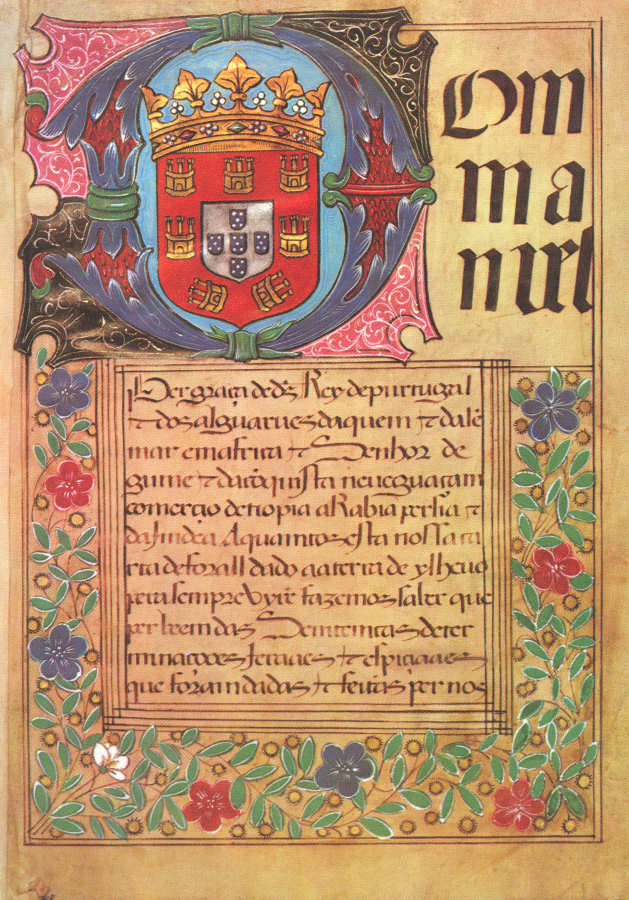 Dom
ma
nuel
Per graça de d's Rey de purtugal
& dos alguarues daquem & dalē
mar em africa & Senhor de
guine & da cōquista nauegaçam
comerçio de tiopia aRabia persia &
da Jndea A quantos esta nossa ca
rta de forall dado aa terra de ylheuo
pera sempre vyrē fazemos saber que
per bem das Sentenças deter
minações Jeraaes & espiçiaaes
que foram dadas & feitas per nos